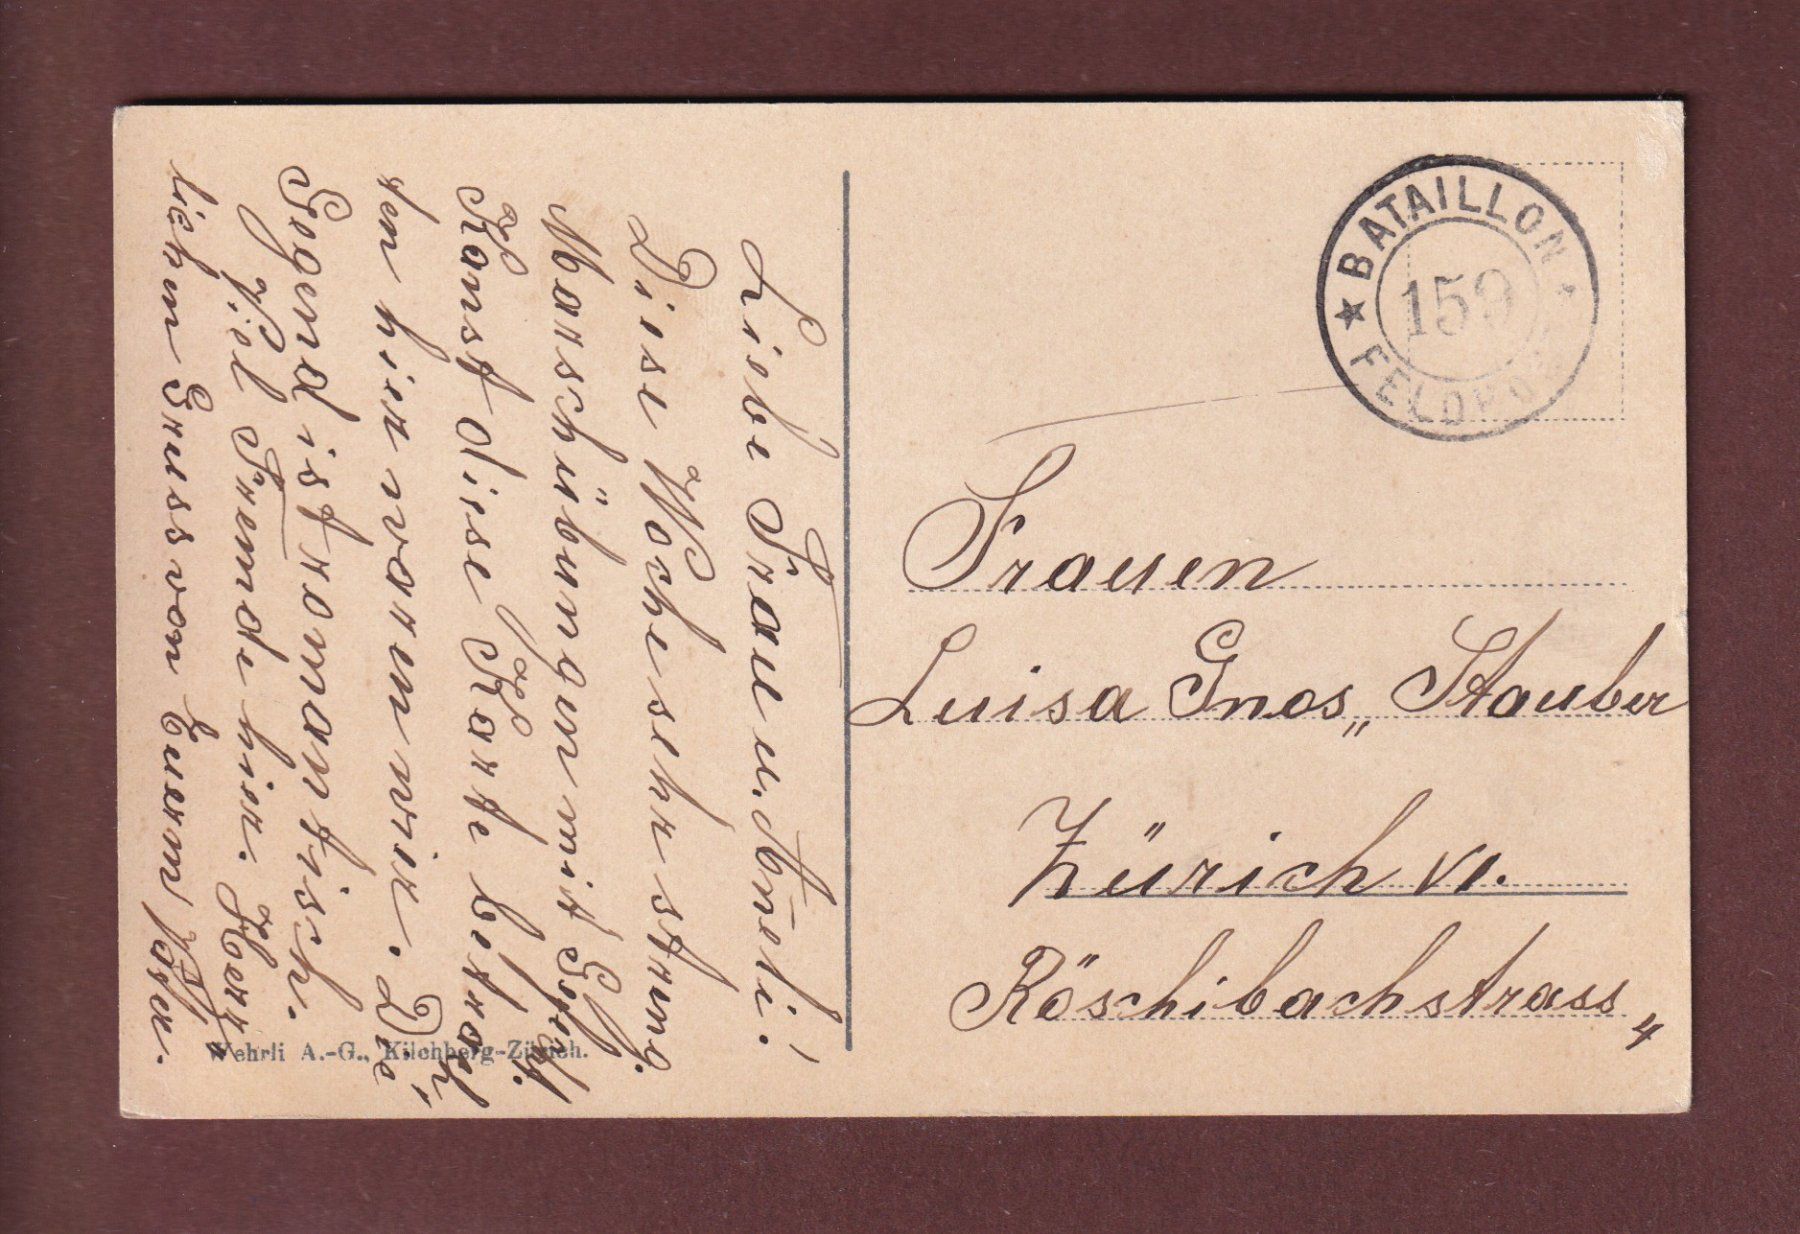 Liebe Frau u. Aneli!
Diese Woche sehr streng.
Marschübungen mit Gefecht.
Kanst diese Karte betrach
ten hier waren wir. Die
Gegend ist romantisch.
Viel Fremde hier. Herz
lichen Gruss von Euerm Vater.
Wehrli A.-G., Kilchberg-Zürich.
BATAILLON
159
FELDPOST
Frauen
Luisa Gnos„ Stauber
Zürich VI.
Röschibachstrass
4